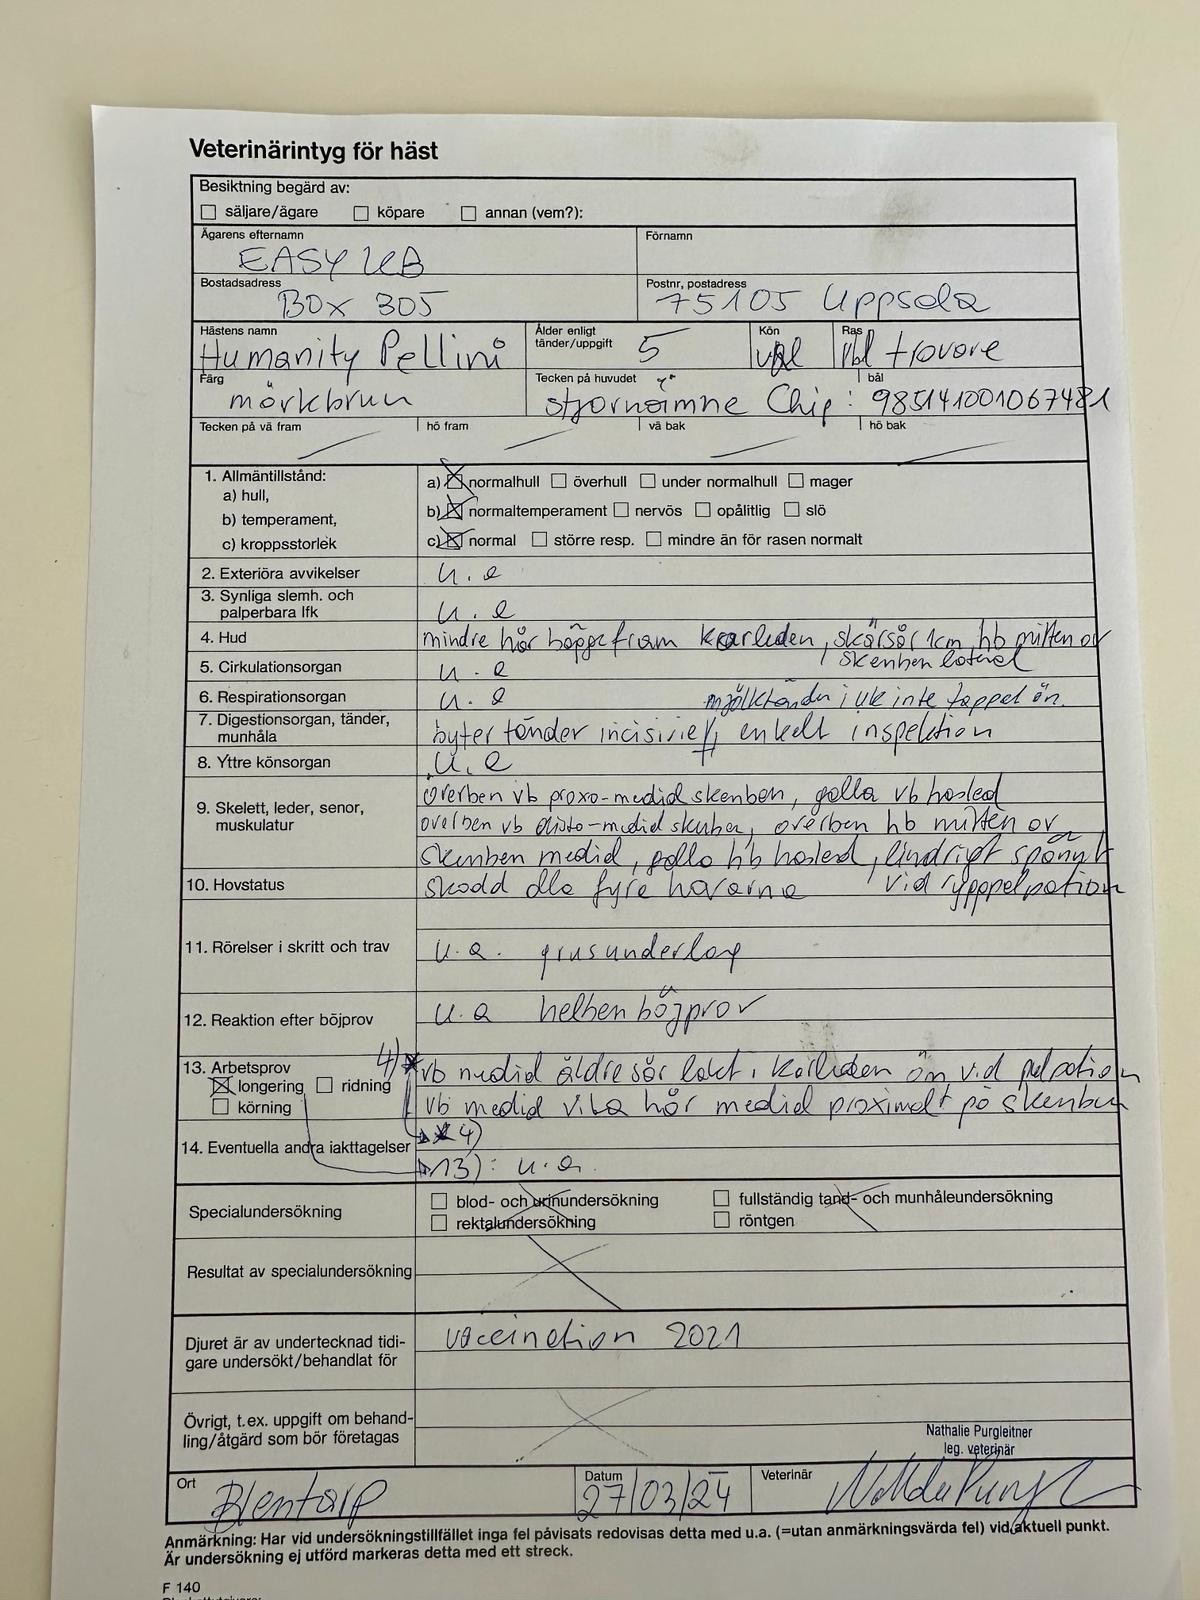 Veterinärintyg för häst
Besiktning begärd av:
säljare/ägare köpare annan (vem?):
Ägarens efternamn Förnamn
EASY KB
Bostadsadress Postnr, postadress
BOX 305 75105 Uppsala
Hästens namn Ålder enligt tänder/uppgift Kön Ras
Humanity Pellini 5 val vbl travare
Färg Tecken på huvudet bål
mörkbrun stjärnämne Chip: 985141001067481
Tecken på vä fram hö fram vä bak hö bak
1. Allmäntillstånd:
a) hull, a) normalhull överhull under normalhull mager
b) temperament, b) normaltemperament nervös opålitlig slö
c) kroppsstorlek c) normal större resp. mindre än för rasen normalt
2. Exteriöra avvikelser u.a
3. Synliga slemh. och
palperbara lfk u.a
4. Hud mindre hår bägge fram karleden, skärsår 1cm hb mitten av
skenben lateral
5. Cirkulationsorgan u.a
6. Respirationsorgan u.a
mjölktänder i uk inte tappat än.
7. Digestionsorgan, tänder,
munhåla byter tänder incisivie, enkelt inspektion
8. Yttre könsorgan u.a
9. Skelett, leder, senor,
muskulatur
överben vb proxo-medial skenben, galla vb hasled
överben vb disto-medial skenben, överben hb mitten av
skenben medial, galla hb hasled, lindrigt spänd
vid ryggpalpation
10. Hovstatus skodd alla fyra hovarna
11. Rörelser i skritt och trav u.a. grusunderlag
12. Reaktion efter böjprov u.a helben böjprov
13. Arbetsprov
longering ridning
körning
4) vb medial äldre sår lokt i karleden öm vid palpation
vb medial vita hår medial proximalt på skenben
14. Eventuella andra iakttagelser 4)
13): u.a.
Specialundersökning blod- och urinundersökning fullständig tand- och munhåleundersökning
rektalundersökning röntgen
Resultat av specialundersökning
Djuret är av undertecknad tidi-
gare undersökt/behandlat för vaccination 2021
Övrigt, t.ex. uppgift om behand-
ling/åtgärd som bör företagas
Nathalie Purgleitner
leg. veterinär
Ort Datum Veterinär
Blentarp 27/03/24
Anmärkning: Har vid undersökningstillfället inga fel påvisats redovisas detta med u.a. (=utan anmärkningsvärda fel) vid aktuell punkt.
Är undersökning ej utförd markeras detta med ett streck.
F 140